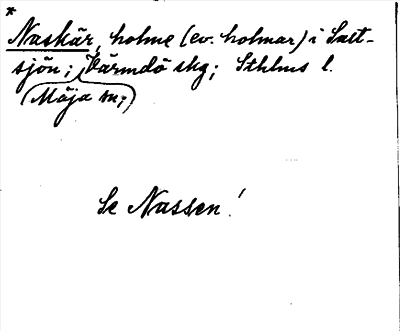 *
Naskär, holme (ev. holmar) i Salt-
sjön; Värmdö skg; Sthlms l.
(Möja sn;)
Se Nassen!